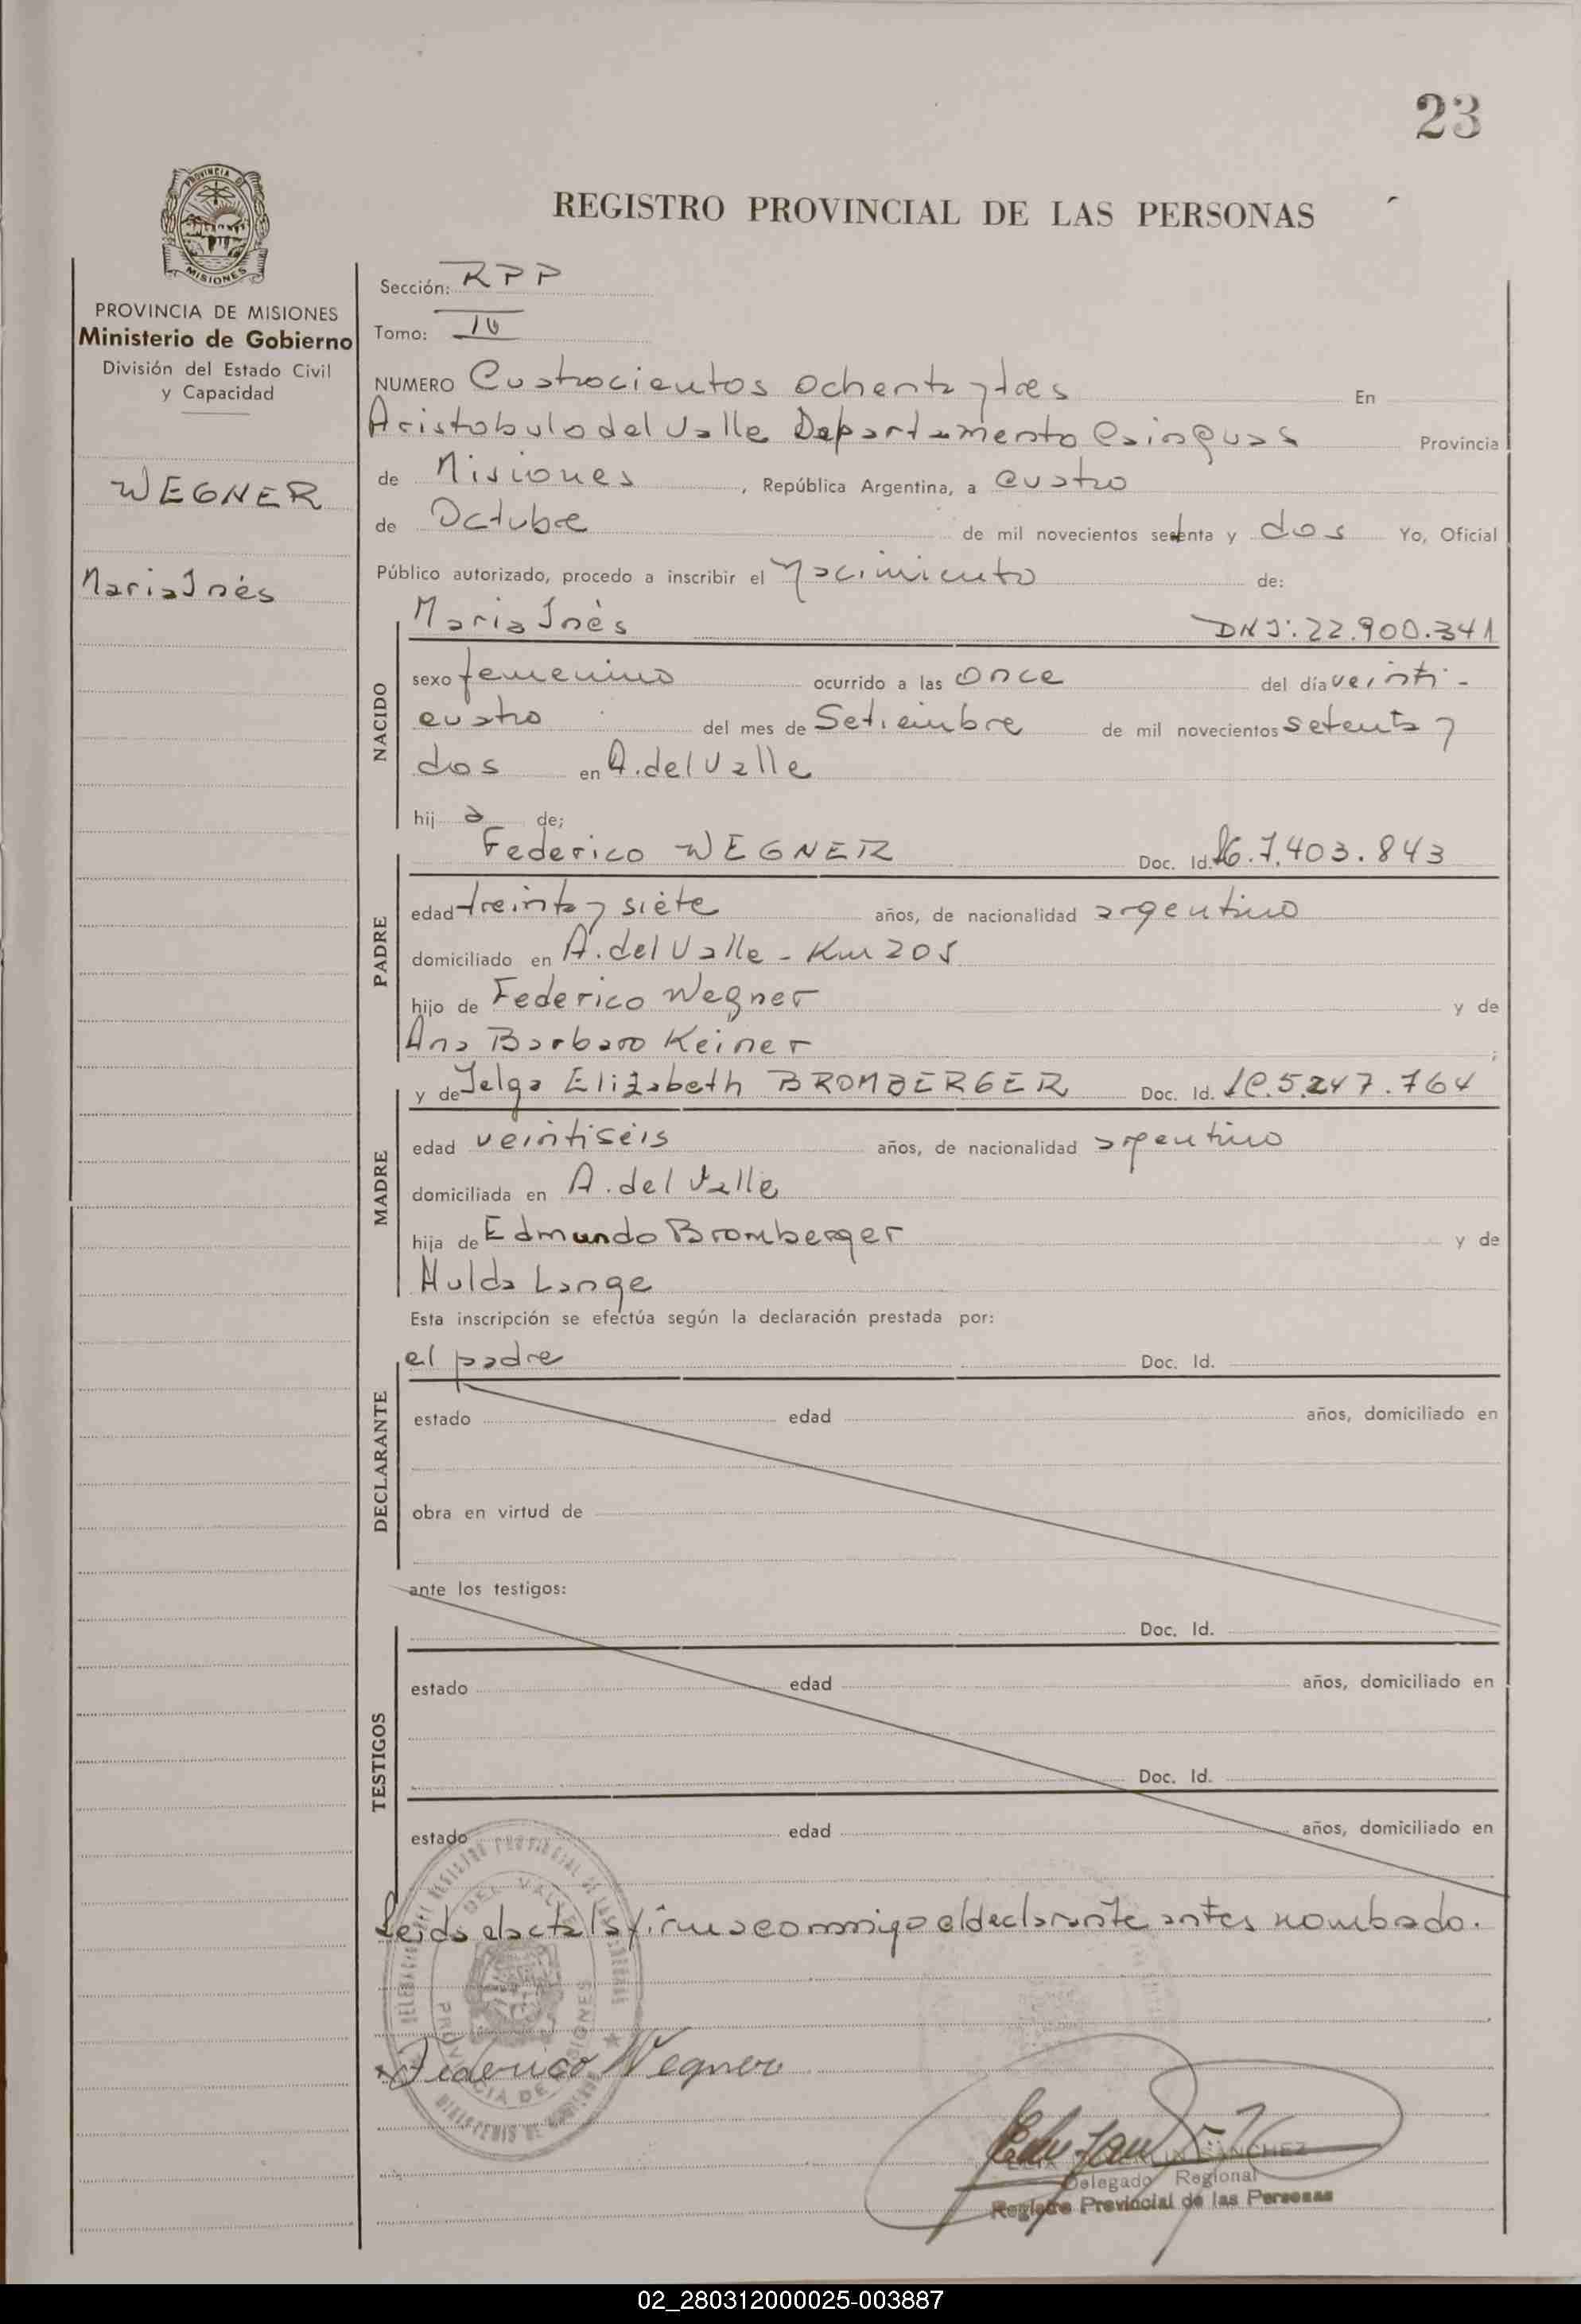 23
PROVINCIA DE
MISIONES
REGISTRO PROVINCIAL DE LAS PERSONAS
PROVINCIA DE MISIONES
Ministerio de Gobierno
División del Estado Civil
y Capacidad
WEGNER
Maria Inés
Sección: RPP
Tomo: IV
NUMERO Cuatrocientos ochenta y tres En
Aristobulo del Valle Departamento Cainguas Provincia
de Misiones, República Argentina, a cuatro
de Octubre de mil novecientos setenta y dos Yo, Oficial
Público autorizado, procedo a inscribir el Nacimiento de:
NACIDO
Maria Inés DNI: 22.900.341
sexo femenino ocurrido a las once del día veinti-
cuatro del mes de Setiembre de mil novecientos setenta y
dos en A. del Valle
hij a de;
PADRE
Federico WEGNER Doc. Id. 7.403.843
edad treinta y siete años, de nacionalidad argentino
domiciliado en A. del Valle - Km 205
hijo de Federico Wegner y de
Ana Barbara Keiner
MADRE
y de Jelga Elizabeth BROMBERGER Doc. Id. 5.247.764
edad veintiseis años, de nacionalidad argentino
domiciliada en A. del Valle
hija de Edmundo Bromberger y de
Hulda Lange
Esta inscripción se efectúa según la declaración prestada por:
DECLARANTE
el padre Doc. Id.
estado edad años, domiciliado en
obra en virtud de
ante los testigos:
TESTIGOS
Doc. Id.
estado edad años, domiciliado en
Doc. Id.
estado edad años, domiciliado en
Leida el acta la firma conmigo el declarante antes nombrado.
Federico Wegner
SANCHEZ
Delegado Regional
Registro Provincial de las Personas
02_280312000025-003887